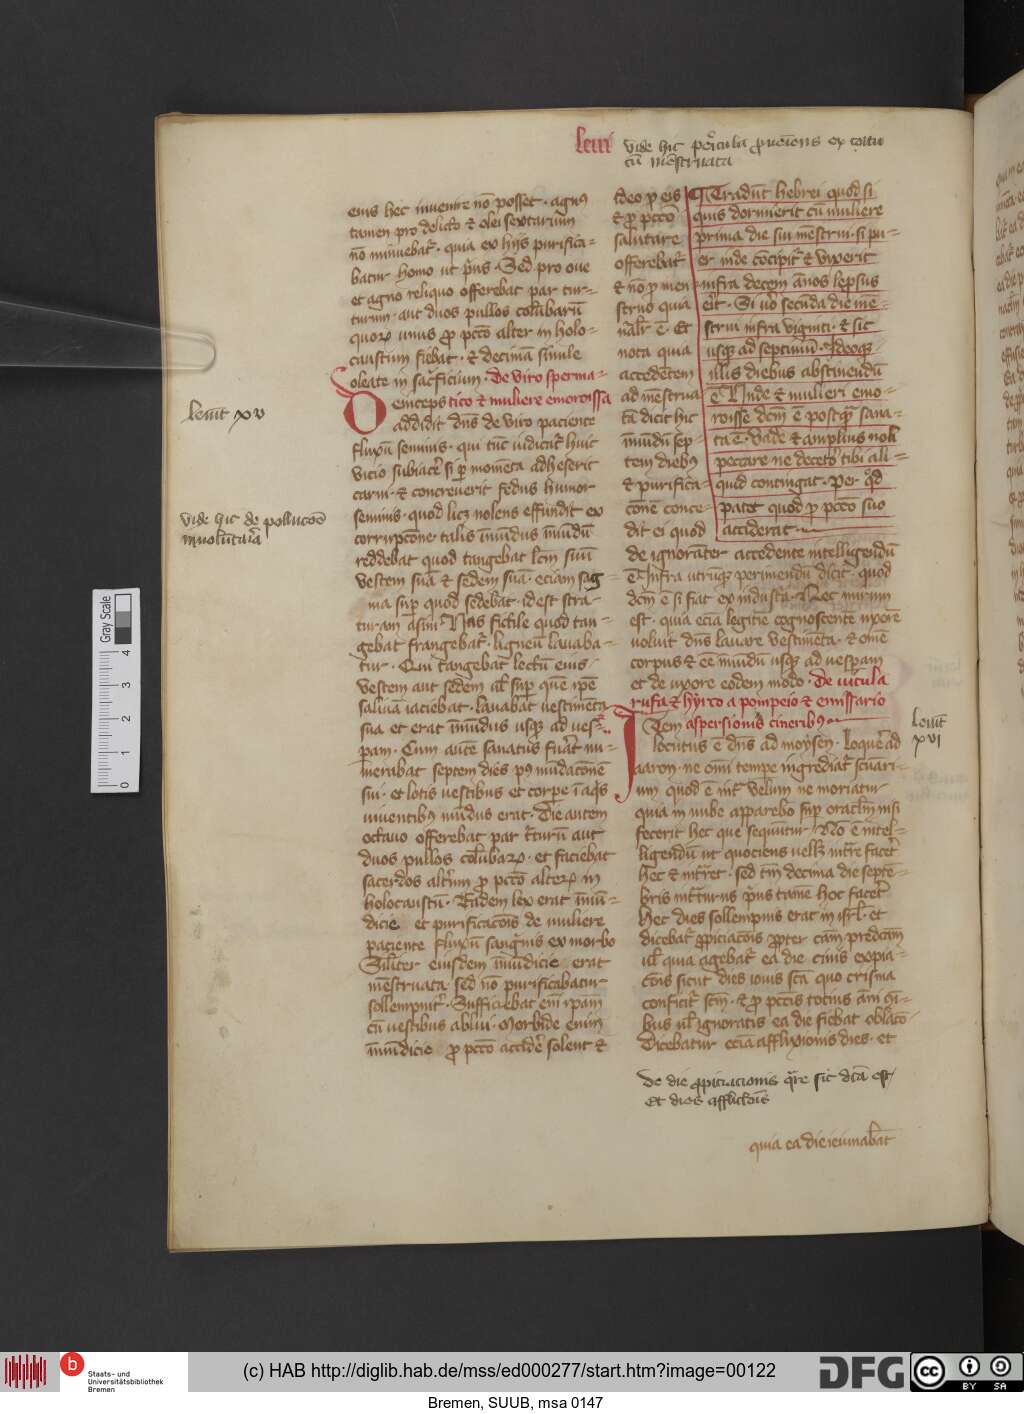 leui
vide hic picula pueies ex coitu
cu mestruata
eius hec inuenire no posset · agnus
tamen pro delicto et olei sextarium
no minuebatr · quia ex hijs purifica=
batur homo ut prius · Sed pro oue
et agno reliquo offerebat par tur=
turum · aut duos pullos columbaru
quorum unus pro pcco alter in holo=
caustum fiebat · et decima simile
oleate in sacrificium · de viro sperma=
tico et muliere emoroissa
Deinceps
addidit dns de viro paciente
fluxu seminis · qui tuc iudicatr huic
vicio subiacere si per mometa adheserit
carni · et concreuerit fedus humor
seminis · quod licz nolens effundit ex
corrupcone · talis inmudus inmudu
reddebat quod tangebat lectum suu
vestem sua et sedem sua · eciam sag=
ma super quod sedebat · id est stra=
turam asini · Vas fictile quod tan=
gebat frangebatr · ligneu lauaba=
tur · Qui tangebat lectu eius ·
vestem aut sedem al super que ipe
saliua iaciebat · lauabat vestimenta
sua et erat inmudus usque ad ves=
peram · Cum aute sanatus fuerat nu=
merabat septem dies post mudacone
sui · et lotis vestibus et corpe i aqis
viuentibus mudus erat · Die autem
octauo offerebat par turturu aut
duos pullos columbarum · et faciebat
sacerdos alterum pro pcco alterum in
holocaustu · Eadem lex erat inmu=
dicie et purificacois de muliere
paciente fluxu sanguinis ex morbo
Siliter eiusdem inmudicie erat
mestruata sed no purificabatur
sollempnitr · Sufficiebat eni ipam
cu vestibus ablui · Morbide enim
inmudicie pro pcco accidere solent et
leuit xv
vide hic de pollucoe
inuolutaria
ideo pro eis
et pro pcco
salutare
offerebatr
et no pro men
struo quia
nalr e · Et
nota quia
accedetem
ad mestrua
ta dicit hic
inmudu sep=
tem diebus
et purifica=
cone conce=
dit ei quod
Tradut hebrei quod si
quis dormierit cu muliere
prima die sui mestrui · si pu=
er inde cocipitr et vixerit
infra decem anos lepsus
erit · Si uo secuda die me=
strui infra viginti · et sic
usque ad septimu · Ideoque
illis diebus abstinendu
e · Unde et mulieri emo=
roisse dcm e postq sana=
ta e · vade et amplius noli
peccare ne deceto tibi ali=
quid contingat · Per qd
patet quod pro pcco suo
acciderat
de ignoranter accedente intelligendu
e · Infra utruque perimendu dicit · quod
dcm e si fiat ex industa · Nec mirum
est · quia ecia legitie cognoscente uxore
voluit dns lauare vestimeta · et ome
corpus et ee inmudu usque ad vesperam
et de uxore eodem modo · de vitula
rufa et hyrco a pompeio et emissario
Item aspersionis cineribus
locutus e dns ad moysen · loquere ad
aaron · ne omi tempe ingrediatr scuari=
um quod e intra velum ne moriatur
quia in nube apparebo super oraclm nisi
fecerit hec que sequuntur · No e intel=
ligendu ut quociens vellz intrare facet
hec et intraret · sed tm decima die septe=
bris intraturus prius tame hoc facet
Hec dies sollempnis erat in isrl · et
dicebatr propiciacois propter cam predcam
ul quia agebatr ea die ciuis expia=
cois sicut dies iouis sca quo crisma
conficitr scm · et pro pccis tocius ani qi=
bus ul ignoratis ea die fiebat oblaco ·
Dicebatur ecia afflixionis dies · et
leuit
xvi
de die propiciacionis qre sic dca est
et dies afflictois
quia ea die ieiunabat
Gray Scale
4
3
2
1
0
b
Staats- und
Universitätsbibliothek
Bremen
(c) HAB http://diglib.hab.de/mss/ed000277/start.htm?image=00122
DFG
cc
BY SA
Bremen, SUUB, msa 0147